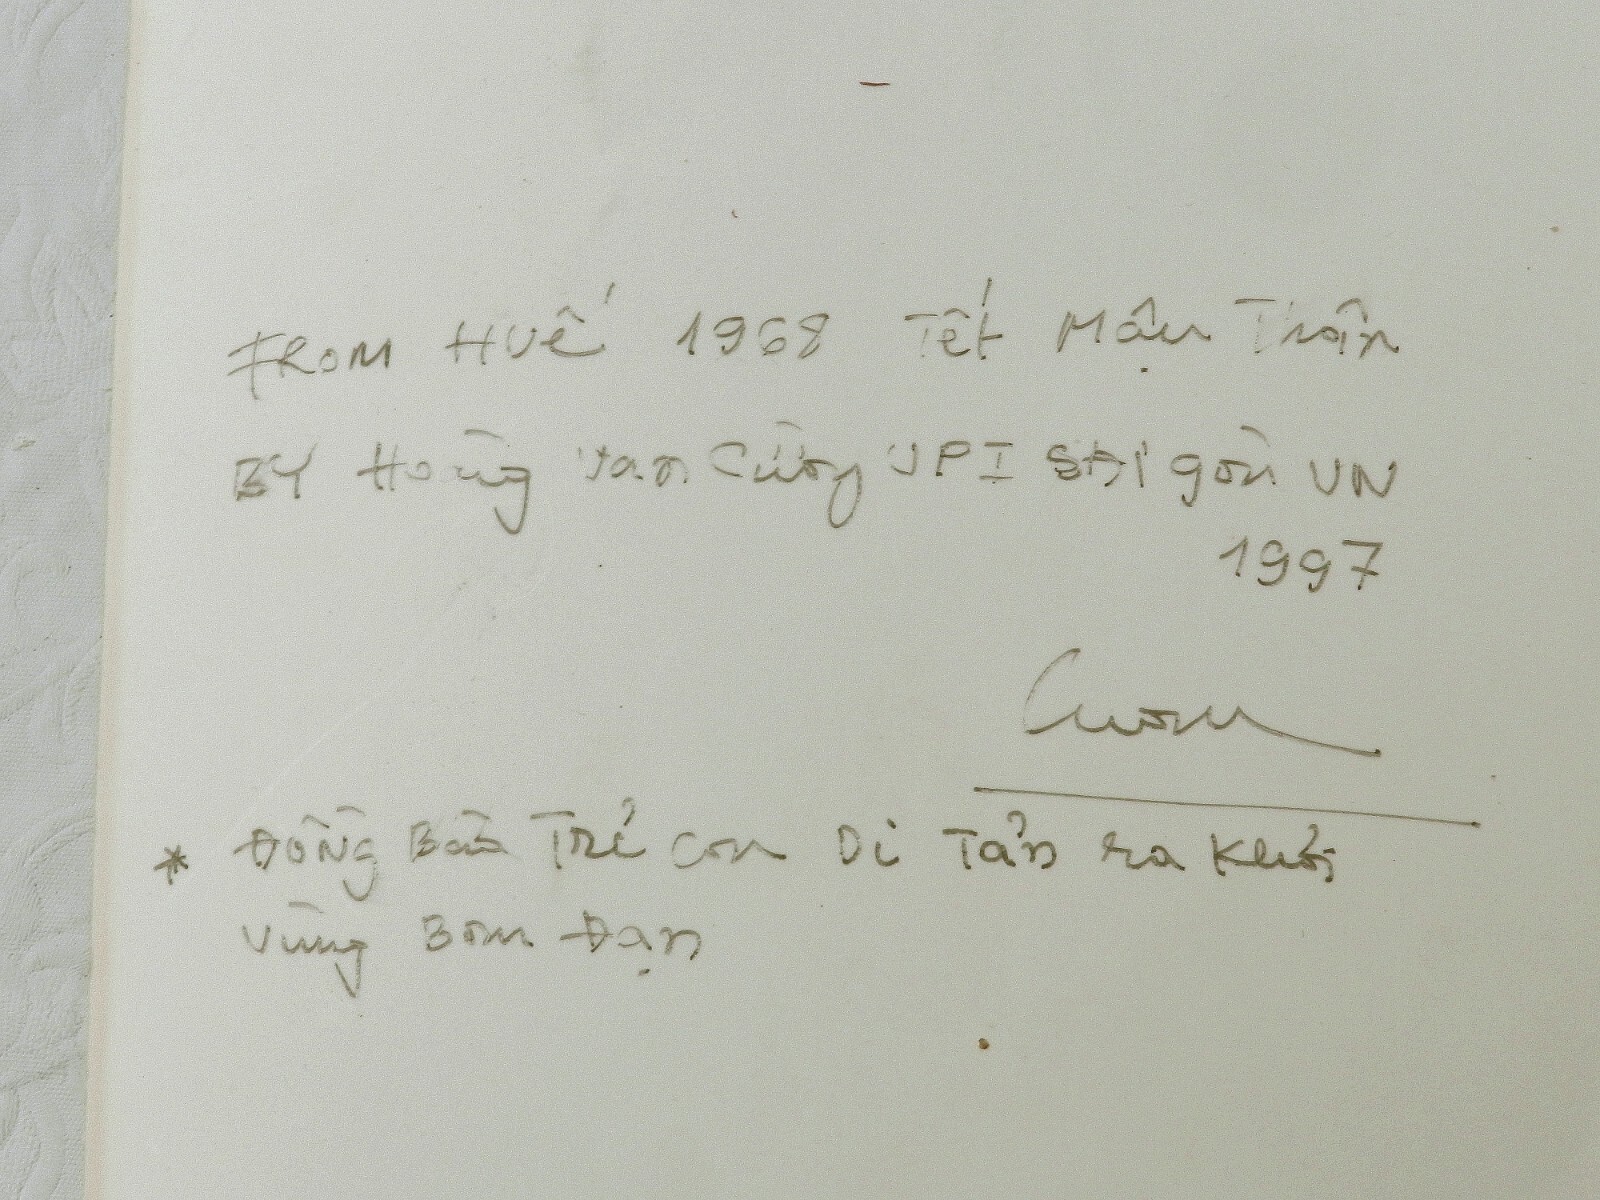 FROM HUế 1968 Tết Mậu Thân
BY Hoàng Van Cường UPI SAI gòn VN
1997
Cuong
* ĐỒNG Bào Trẻ con Di Tản ra Khỏi
Vùng Bom Đạn